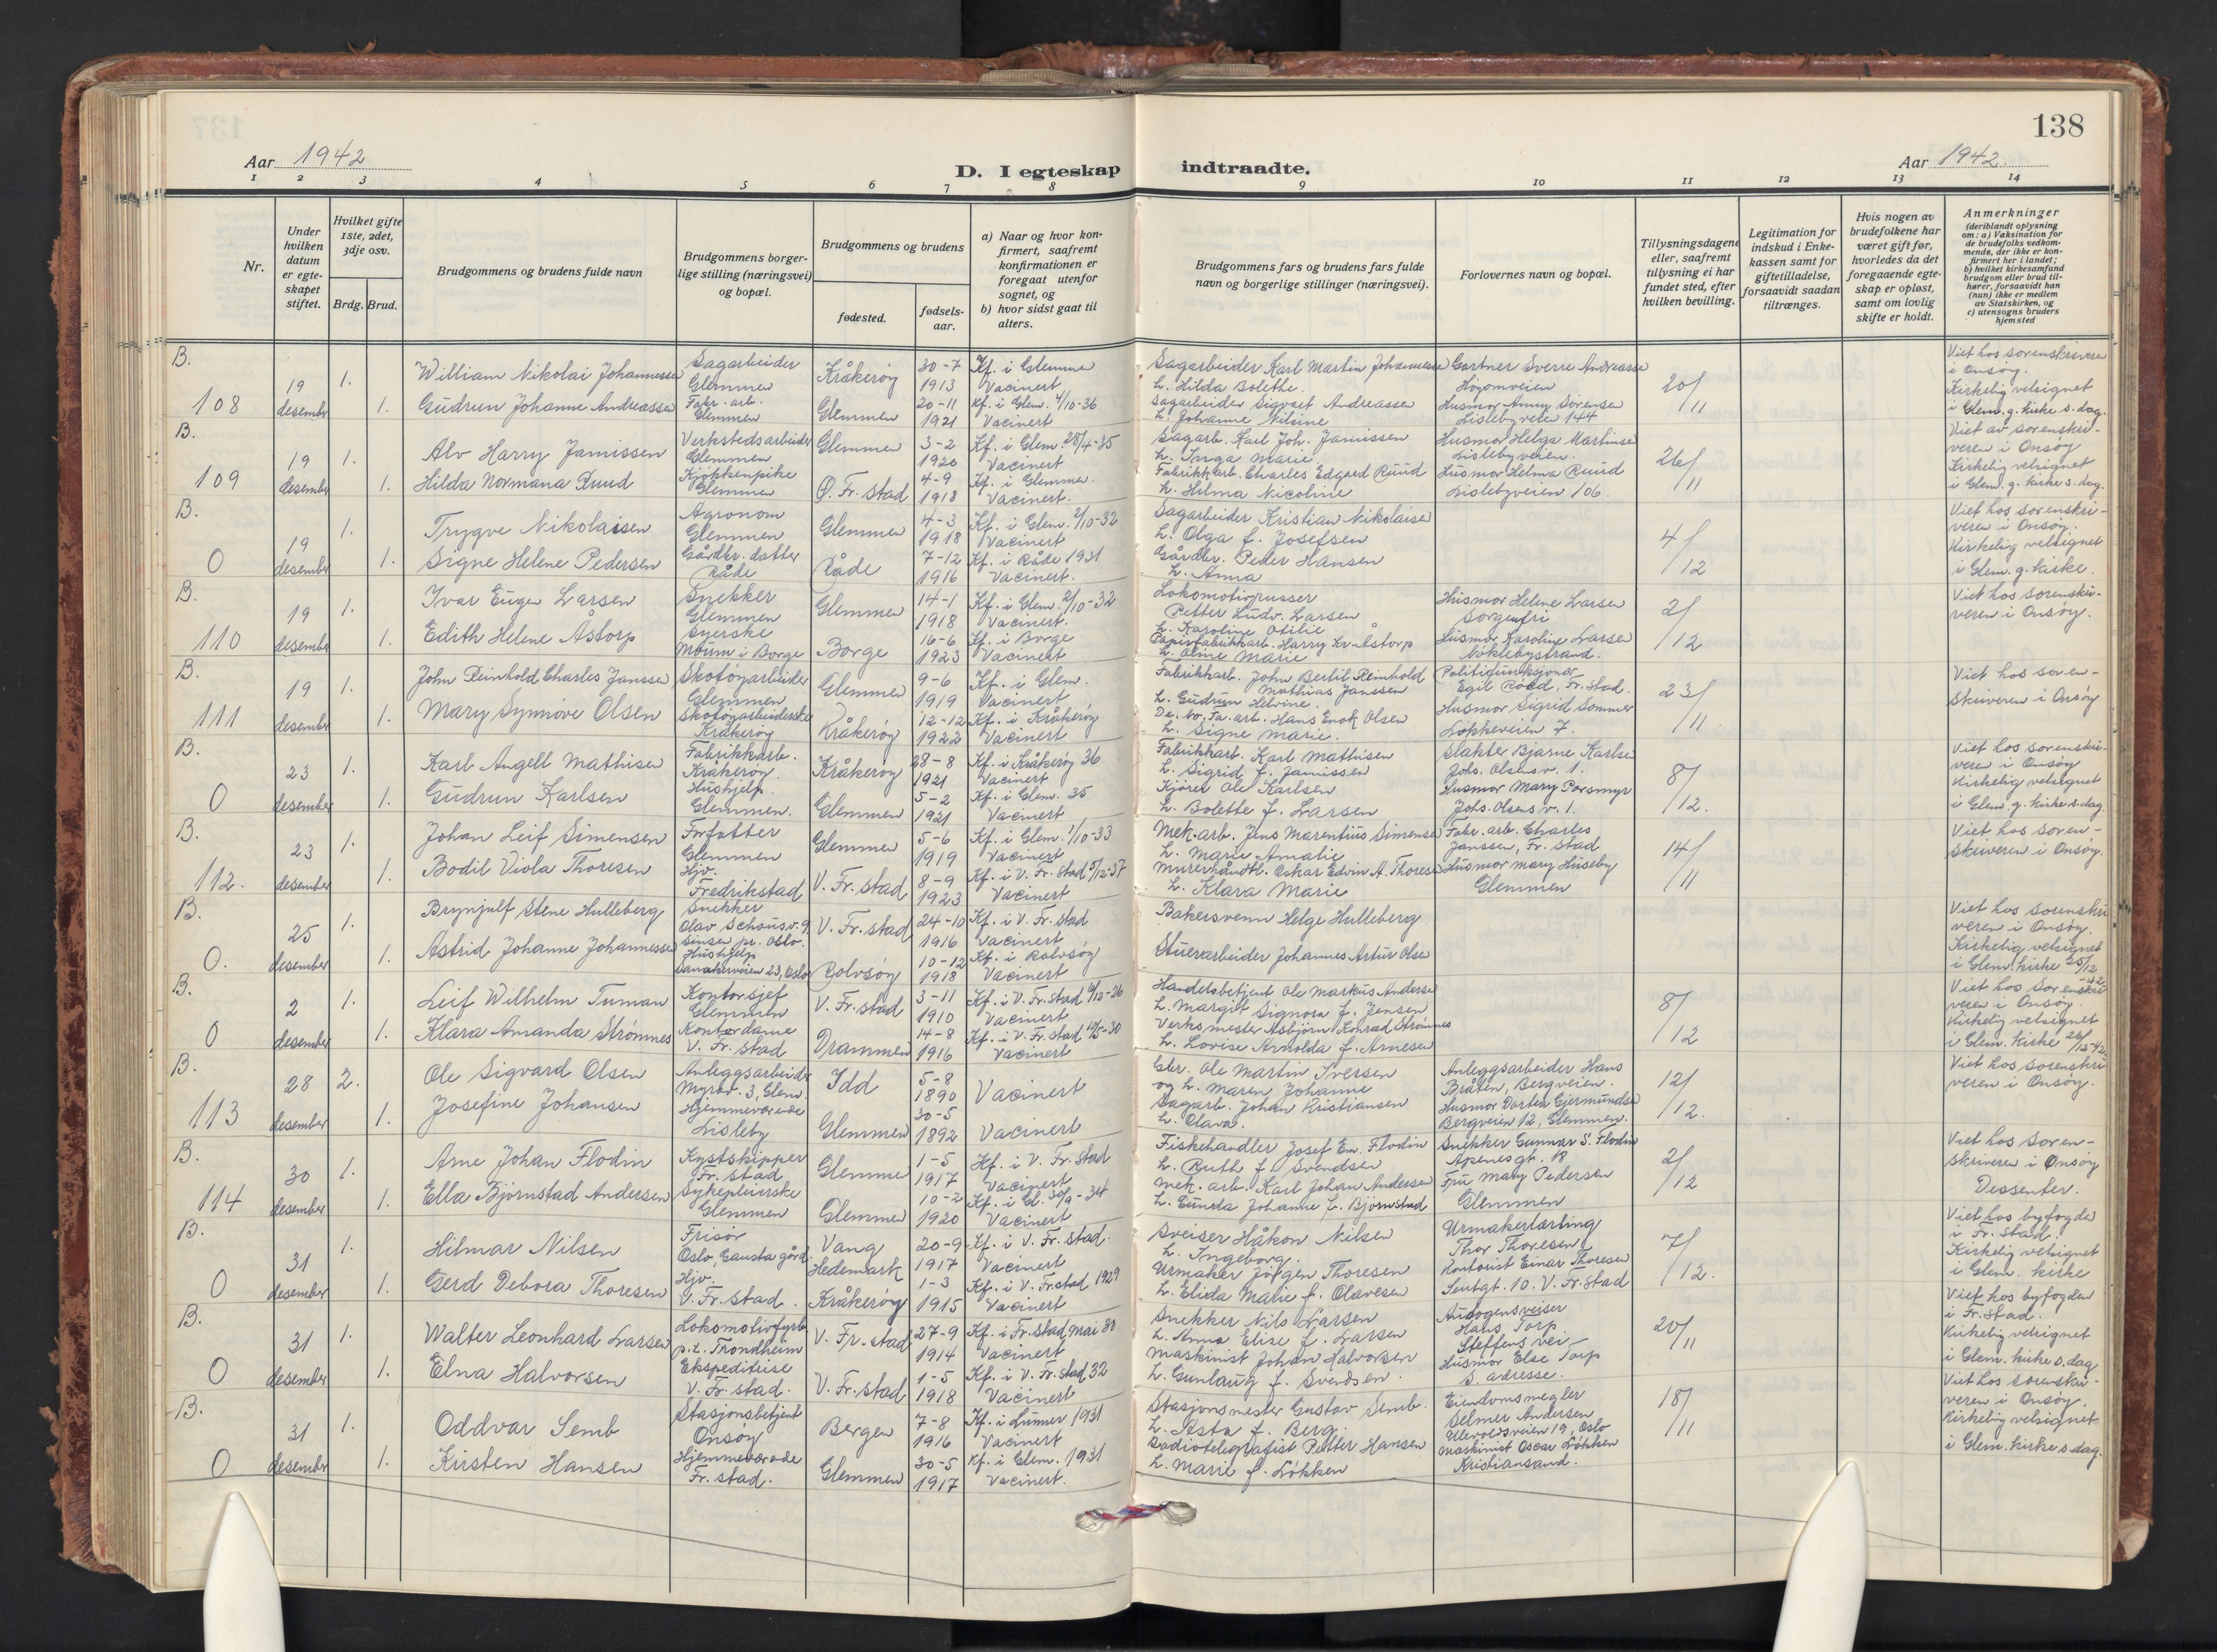 138
Aar 1942
D. I egteskap indtraadte.
Aar 1942.
1 2 3 4 5 6 7 8 9 10 11 12 13 14
Nr.
Under hvilken datum er egte-skapet stiftet.
Hvilket gifte 1ste, 2det, 3dje osv.
Brdg. Brud.
Brudgommens og brudens fulde navn
Brudgommens borger-lige stilling (næringsvei) og bopæl.
Brudgommens og brudens
fødested.
fødsels-aar.
a) Naar og hvor kon-firmert, saafremt konfirmationen er foregaat utenfor sognet, og
b) hvor sidst gaat til alters.
Brudgommens fars og brudens fars fulde navn og borgerlige stillinger (næringsvei).
Forlovernes navn og bopæl.
Tillysningsdagene eller, saafremt tillysning ei har fundet sted, efter hvilken bevilling.
Legitimation for indskud i Enke-kassen samt for giftetilladelse, forsaavidt saadan tiltrænges.
Hvis nogen av brudefolkene har været gift før, hvorledes da det foregaaende egte-skap er opløst, samt om lovlig skifte er holdt.
Anmerkninger
(deriblandt oplysning om: a) Vaksination for de brudefolks vedkom-mende, der ikke er kon-firmert her i landet;
b) hvilket kirkesamfund brudgom eller brud til-hører, forsaavidt han (hun) ikke er medlem av Statskirken, og
c) utensogns bruders hjemsted
B. 108
19 desember
1. William Nikolai Johannessen Sagarbeider Glemmen Kråkerøy 30-7 1913 Kf. i Glemmen Vacinert
1. Gudrun Johanne Andreassen Fabr. arb. Glemmen Glemmen 20-11 1921 Kf. i Glem. 4/10-36 Vacinert
Sagarbeider Karl Martin Johannessen
h. Hilda Bolethe.
Sagarbeider Sigvart Andreassen
h. Johanne Nilsine
Gartner Sverre Andreassen
Høyomveien
Husmor Anny Sørensen
Lislebyveien 144
20/11
Viet hos sorenskriveren i Onsøy.
Kirkelig velsignet i Glem. g. kirke s. dag.
B. 109
19 desember
1. Alv Harry Jamissen Verkstedsarbeider Glemmen Glemmen 3-2 1920 Kf. i Glem. 28/4-35 Vacinert
1. Hilda Normana Ruud Kjøkkenpike Glemmen Ø. Fr. stad 4-9 1918 Kf. i Glemmen. Vacinert.
Sagarb. Karl Joh. Jamissen
h. Inga Marie
Fabrikkarb. Charles Edgard Ruud
h. Hilma Nicoline
Husmor Helga Martinsen
Lislebyveien.
Husmor Helma Ruud
Lislebyveien 106.
26/11
Viet av sorenskri-veren i Onsøy
Kirkelig velsignet i Glem. g. kirke s. dag.
B. 0
19 desember
1. Trygve Nikolaisen Agronom Glemmen Glemmen 4-3 1918 Kf. i Glem. 2/10-32 Vacinert
1. Signe Helene Pedersen Gårdbr. datter Råde Råde 7-12 1916 Kf. i Råde 1931 Vacinert.
Sagarbeider Kristian Nikolaisen
h. Olga f. Josefsen
Gårdbr. Peder Hansen
h. Anna
4/12
Viet hos sorenskri-veren i Onsøy.
Kirkelig velsignet i Glem. g. kirke.
B. 110
19 desember
1. Ivar Eugen Larsen Snekker Glemmen Glemmen 14-1 1918 Kf. i Glem. 2/10-32 Vacinert.
1. Edith Helene Åstorp Syerske Moum i Borge Borge 16-6 1923 Kf. i Borge Vacinert
Lokomotivpusser
Petter Ludv. Larsen
h. Karoline Otilie
Papirfabrikkarb. Harry Kr. Åstorp
h. Oline Marie
Husmor Helene Larsen
Sorgenfri
Husmor Karoline Larsen
Nøklebystrand.
2/12
Viet hos sorenskri-veren i Onsøy.
B. 111
19 desember
1. John Reinhold Charles Janssen Skotøyarbeider Glemmen Glemmen 9-6 1919 Kf. i Glem. Vacinert
1. Mary Synnøve Olsen Skotøyarbeiderske Kråkerøy Kråkerøy 12-12 1922 Kf. i Kråkerøy Vacinert
Fabrikkarb. John Bertil Reinhold
Mathias Janssen
h. Gudrun Helvine.
De. No. Fa. arb. Hans Enok Olsen
h. Signe Marie.
Politifunksjonær
Egil Røed, Fr. stad.
Husmor Sigrid Sommer
Løkkeveien 7.
23/11
Viet hos soren-skriveren i Onsøy
B. 0
23 desember
1. Karl Angell Mathisen Fabrikkarb. Kråkerøy. Kråkerøy 28-8 1921 Kf. i Kråkerøy 36 Vacinert
1. Gudrun Karlsen Hushjelp. Glemmen. Glemmen 5-2 1921 Kf. i Glem. 35 Vacinert
Fabrikkarb. Karl Mathisen
h. Sigrid f. Jamissen
Kjører Ole Karlsen
h. Bolette f. Larsen
Slakter Bjarne Karlsen
Johs. Olsens v. 1.
Husmor Mary Porsmyr
Johs. Olsens v. 1.
8/12.
Viet hos sorenskri-veren i Onsøy
Kirkelig velsignet i Glem. g. kirke s. dag.
B. 112.
23 desember
1. Johan Leif Simensen Forfatter Glemmen Glemmen 5-6 1919 Kf. i Glem. 1/10-33 Vacinert
1. Bodil Viola Thoresen Hjv. Fredrikstad V. Fr. stad 8-9 1923 Kf. i V. Fr. stad 5/12-37 Vacinert
Mek. arb. Jens Marentius Simensen
h. Marie Amalie
Murerhåndtl. Oskar Edvin A. Thoresen
h. Klara Marie
Fabr. arb. Charles
Janssen, Fr. stad
Husmor Mary Huseby
Glemmen
14/11
Viet hos soren-skriveren i Onsøy.
B. 0.
25 desember
1. Brynjulf Stene Hulleberg Snekker Olav Schousv. 9 Sinsen pr. Oslo. V. Fr. stad 24-10 1916 Kf. i V. Fr. stad Vacinert
1. Astrid Johanne Johannessen Hushjelp Sandakerveien 23, Oslo Rolvsøy 10-12 1918 Kf. i Rolvsøy Vacinert
Bakersvenn Helge Hulleberg
Stuerarbeider Johannes Artur Olsen
Viet hos sorenskri-veren i Onsøy.
Kirkelig velsignet i Glem. kirke 25/12 42.
B. 0
2 desember
1. Leif Wilhelm Tuman Kontorsjef Glemmen V. Fr. stad 3-11 1910 Kf. i V. Fr. stad 4/12-26 Vacinert
1. Klara Amanda Strømnes Kontordame V. Fr. stad Drammen 14-8 1916 Kf. i V. Fr. stad 19/5-30 Vacinert
Handelsbetjent Ole Markus Andersen
h. Margit Signora f. Jensen
Verksmester Asbjørn Konrad Strømnes
h. Lovise Arnolda f. Arnesen
8/12
Viet hos sorenskri-veren i Onsøy.
Kirkelig velsignet i Glem. kirke 26/12-42.
B. 113
28 desember
2. Ole Sigvard Olsen Anleggsarbeider Myrav. 3, Glem. Idd 5-8 1890 Vacinert
1. Josefine Johansen Hjemmeværende Lisleby Glemmen 30-5 1892 Vacinert
Gbr. Ole Martin Iversen
og h. Maren Johanne
Sagarb. Johan Kristiansen
h. Olava.
Anleggsarbeider Hans
Bråten, Bergveien.
Husmor Dorten Gjermundsen
Bergveien 12, Glemmen.
12/12.
Viet hos sorenskri-veren i Onsøy.
B. 114
30 desember
1. Arne Johan Flodin Kystskipper Fr. stad Glemmen 1-5 1917 Kf. i V. Fr. stad Vacinert
1. Ella Bjørnstad Andersen Sykepleierske Glemmen Glemmen 10-2 1920 Kf. i Gl. 30/9-34 Vacinert
Fiskehandler Josef Em. Flodin
h. Ruth f. Svendsen
Mek. arb. Karl Johan Andersen
h. Gunda Johanne f. Bjørnstad
Snekker Gunnar S. Flodin
Apenesgt. 18
Fru Mary Pedersen
Glemmen
2/12
Viet hos soren-skriveren i Onsøy
Dissenter.
B. 0
31 desember
1. Hilmar Nilsen Frisør Oslo, Gausta gård Vang Hedemark 20-9 1917 Kf. i V. Fr. stad. Vacinert
1. Gerd Debora Thoresen Hjv. V. Fr. stad. Kråkerøy 1-3 1915 Kf. i V. Fr. stad 1929 Vacinert
Sveiser Håkon Nilsen
h. Ingeborg.
Urmaker Jørgen Thoresen
h. Elida Marie f. Olavesen
Urmakerlærling
Thor Thoresen
Kontorist Einar Thoresen
10. V. Fr. stad
7/12.
Viet hos byfogden i Fr. stad.
Kirkelig velsignet i Glem. kirke
B. 0
31 desember
1. Walter Leonhard Larsen Lokomotivfyrb. p.t. Trondheim V. Fr. stad 27-9 1914 Kf. i Fr. stad, mai 30 Vacinert
1. Elna Halvorsen Ekspeditrise V. Fr. stad. V. Fr. stad 1-5 1918 Kf. i V. Fr. stad 32 Vacinert
Snekker Nils Larsen
h. Anna Elise f. Larsen
Maskinist Johan Halvorsen
h. Gunlaug f. Svendsen.
Autogensveiser
Hans Torp
Steffens vei
Husmor Else Torp
s. adresse.
20/11
Viet hos byfogden i Fr. stad.
Kirkelig velsignet i Glem. kirke s. dag
B. 0
31 desember
1. Oddvar Semb Stasjonsbetjent Onsøy Bergen 7-8 1916 Kf. i Lunner 1931 Vacinert
1. Kirsten Hansen Hjemmeværende Fr. stad. Glemmen 30-5 1917 Kf. i Glem. 1931 Vacinert.
Stasjonsmester Gustav Semb.
h. Asta f. Berg.
Radiotelegrafist Petter Hansen
h. Marie f. Løkken
Eiendomsmegler
Selmer Andersen
Ullevoldsveien 19, Oslo
Maskinist Oscar Løkken
Kristiansand.
18/11
Viet hos sorenskri-veren i Onsøy.
Kirkelig velsignet i Glem. kirke s. dag.